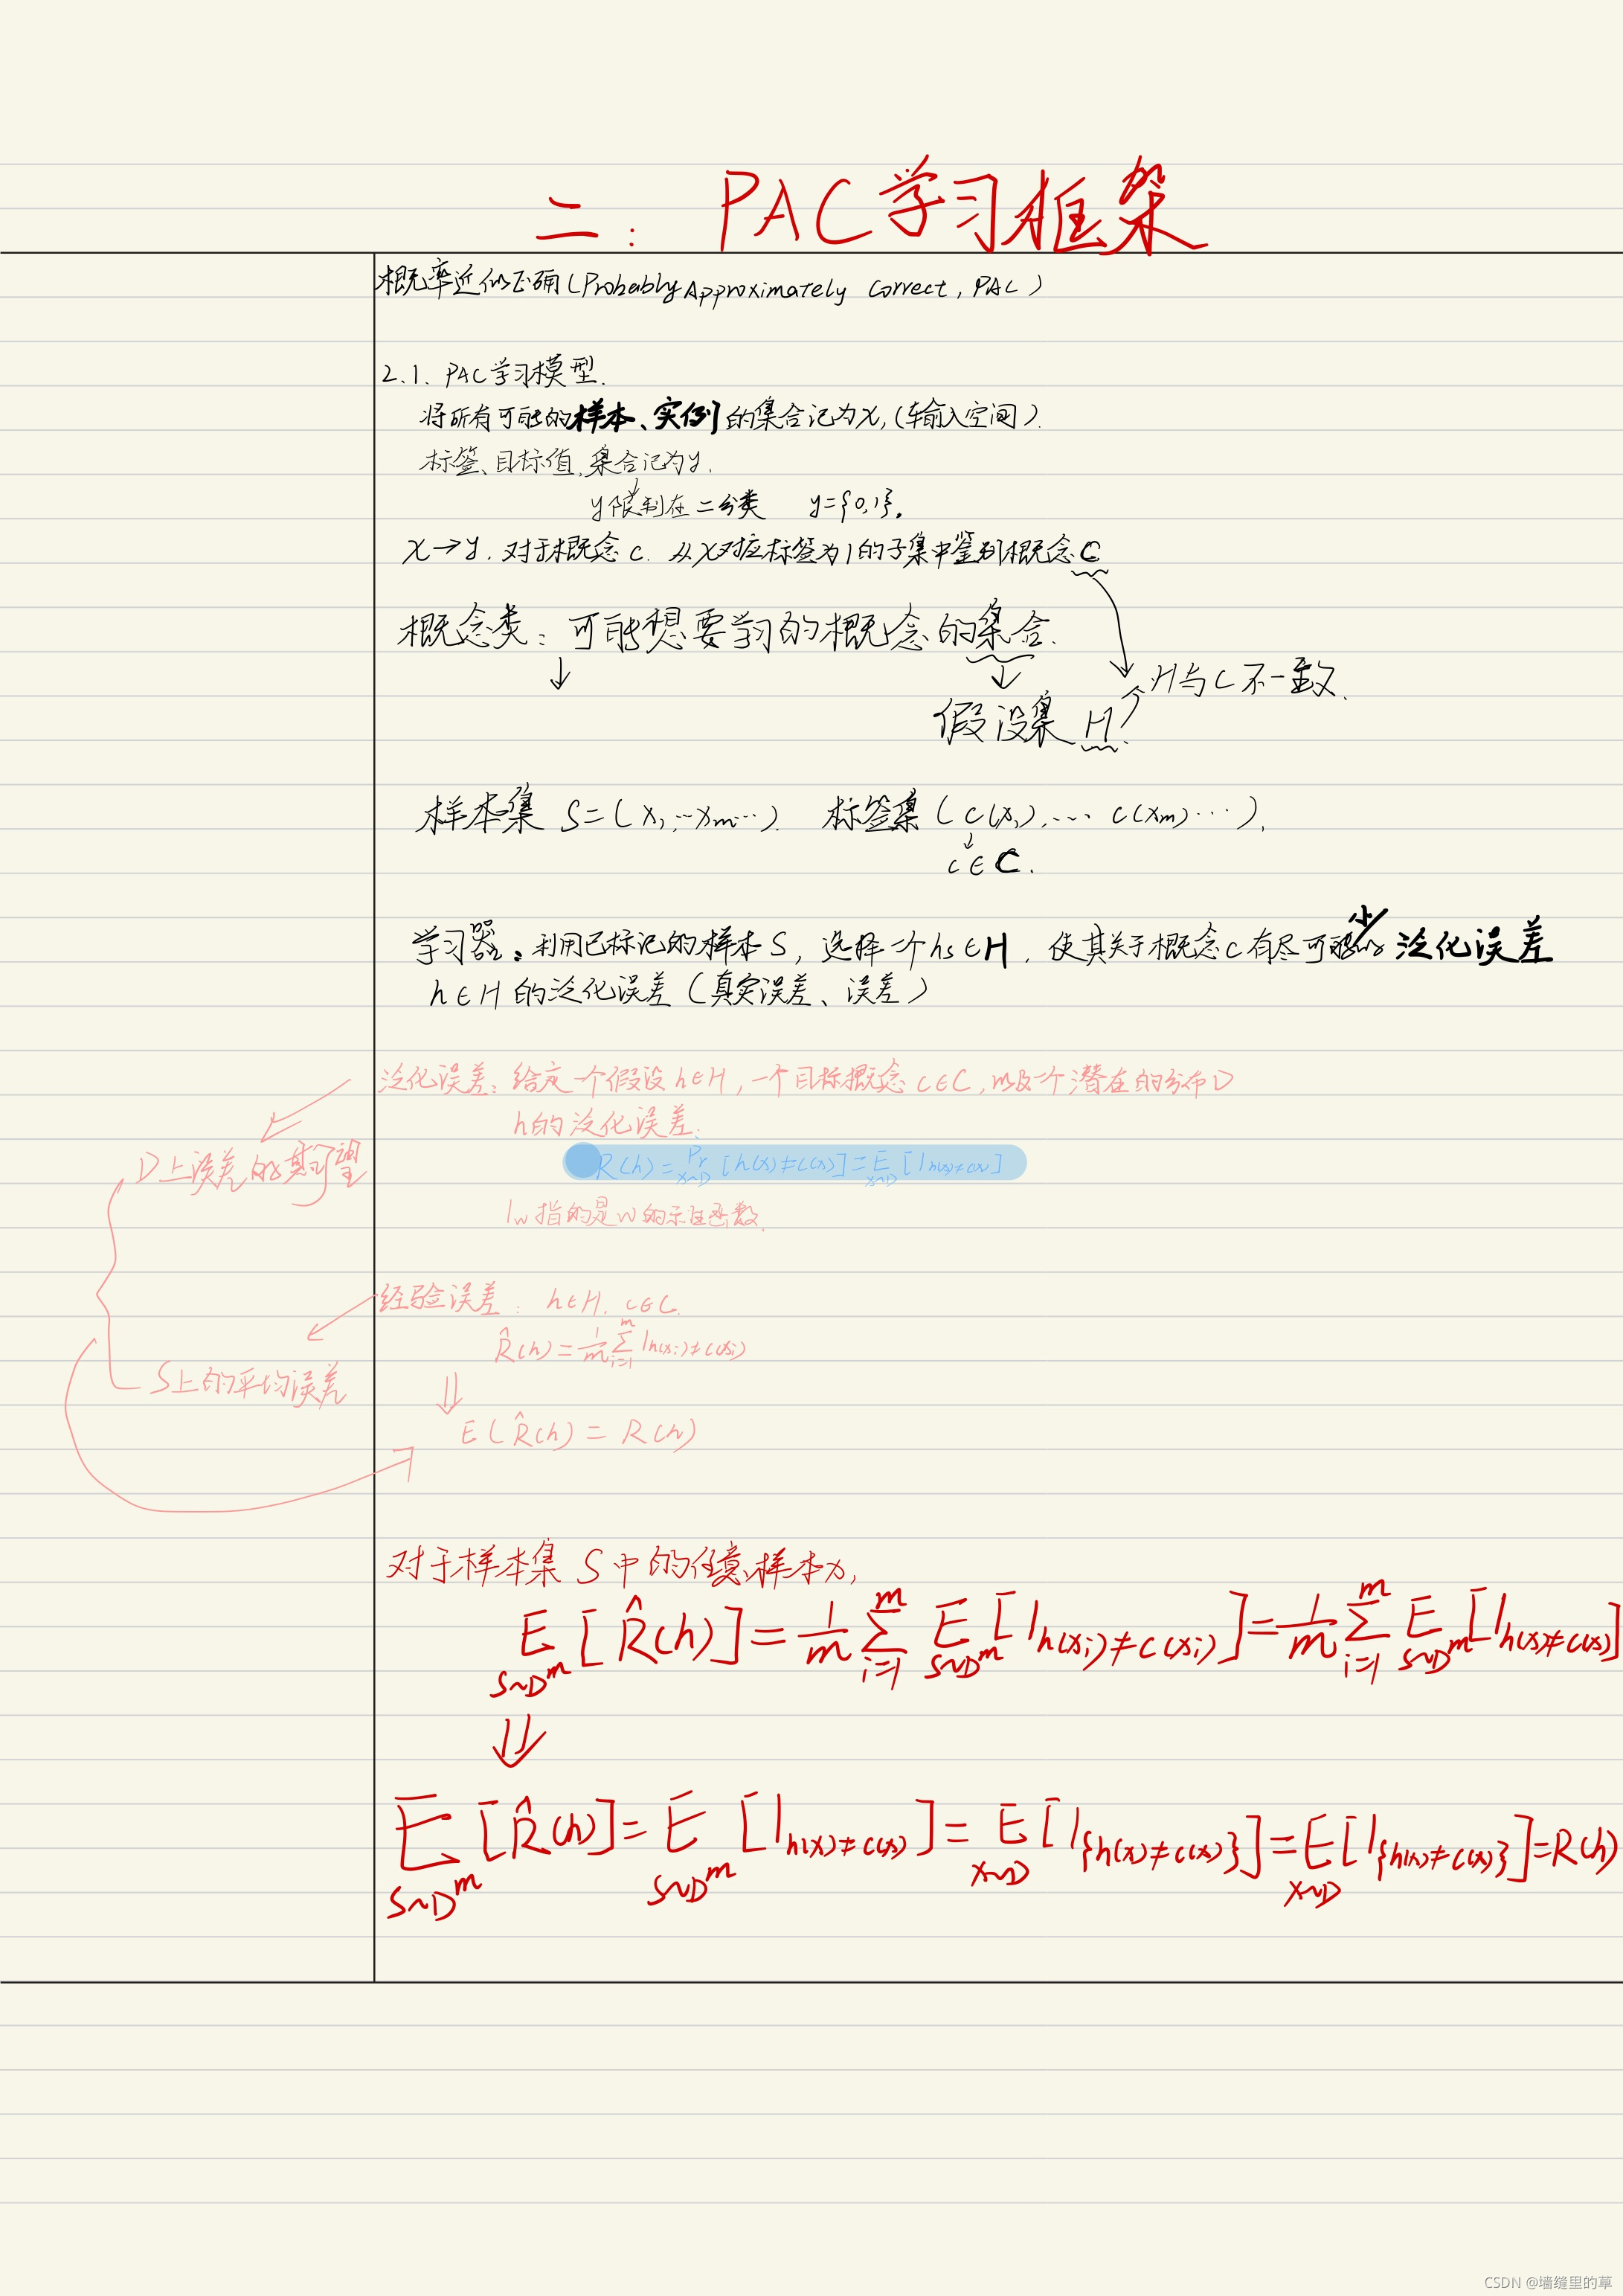 二： PAC学习框架
概率近似正确(Probably Approximately Correct, PAC)
2.1. PAC学习模型.
将所有可能的样本、实例的集合记为X,(输入空间).
标签、目标值,集合记为y.
y限制在二分类 y={0,1}.
X→y. 对于概念c. 从X对应标签为1的子集中鉴别概念C
概念类：可能想要学习的概念的集合.
↓
H与C不一致.
假设集 H.
样本集 S=(x₁...xm...). 标签集(c(x₁),... c(xm)...).
c∈C.
学习器：利用已标记的样本S，选择一个hs∈H，使其关于概念c有尽可能小的泛化误差
h∈H的泛化误差(真实误差、误差)
泛化误差：给定一个假设h∈H,一个目标概念c∈C,以及一个潜在的分布D
h的泛化误差:
D上误差的期望
R(h)=Pr x~D [h(x)≠c(x)]=E x~D [1h(x)≠c(x)]
1w指的是w的示性函数.
经验误差: h∈H. c∈C.
R̂(h)=1/m ∑ᵢ₌₁ᵐ 1h(xi)≠c(xi)
S上的平均误差
⇓
E(R̂(h)=R(h)
对于样本集S中的任意样本x,
E S~Dᵐ [R̂(h)]=1/m ∑ᵢ₌₁ᵐ E S~Dᵐ [1h(xi)≠c(xi)]=1/m ∑ᵢ₌₁ᵐ E S~Dᵐ [1h(x)≠c(x)]
⇓
E S~Dᵐ [R̂(h)]=E S~Dᵐ [1h(x)≠c(x)]=E x~D [1{h(x)≠c(x)}]=E x~D [1{h(x)≠c(x)}]=R(h)
CSDN @墙缝里的草